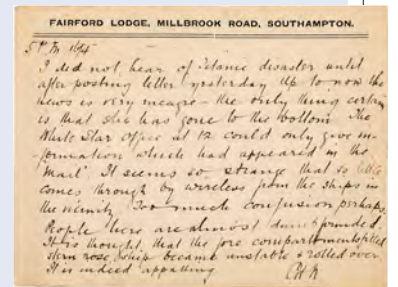 FAIRFORD LODGE, MILLBROOK ROAD, SOUTHAMPTON.
I did not hear of Titanic disaster until
after posting letter yesterday Up to now the
news is very meagre – the only thing certain
is that she has gone to the bottom The
White Star office at 12 could only give in-
formation which had appeared in the
"Mail" It seems so strange that so little
comes through by wireless from the ships in
the vicinity Too much confusion perhaps.
People here are almost dumbfounded.
It is thought that the fore compartments filled
stern rose, ship became unstable & rolled over
It is indeed appalling